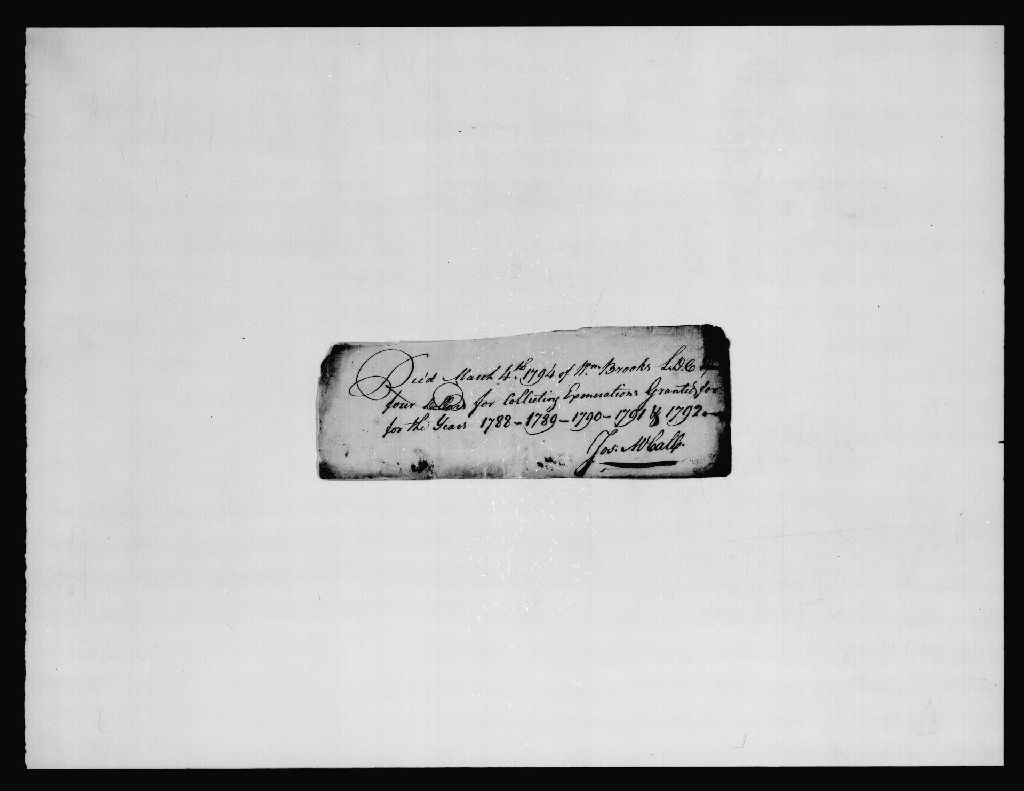 Rec'd March 4th. 1794 of Wm Brooks
four Dollars for Collecting Exonerations Granted for
for the Years 1788 - 1789 - 1790 - 1791 & 1792
Jos. McCalla